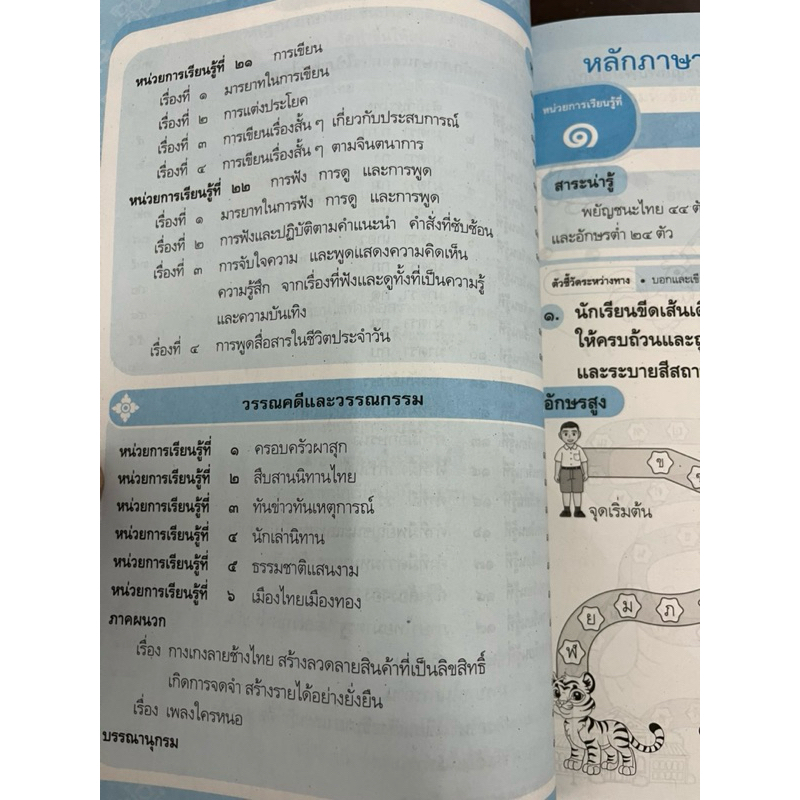 หน่วยการเรียนรู้ที่ ๒๑ การเขียน
เรื่องที่ ๑ มารยาทในการเขียน
เรื่องที่ ๒ การแต่งประโยค
เรื่องที่ ๓ การเขียนเรื่องสั้น ๆ เกี่ยวกับประสบการณ์
เรื่องที่ ๔ การเขียนเรื่องสั้น ๆ ตามจินตนาการ
หน่วยการเรียนรู้ที่ ๒๒ การฟัง การดู และการพูด
เรื่องที่ ๑ มารยาทในการฟัง การดู และการพูด
เรื่องที่ ๒ การฟังและปฏิบัติตามคำแนะนำ คำสั่งที่ซับซ้อน
เรื่องที่ ๓ การจับใจความ และพูดแสดงความคิดเห็น
ความรู้สึก จากเรื่องที่ฟังและดูทั้งที่เป็นความรู้
และความบันเทิง
เรื่องที่ ๔ การพูดสื่อสารในชีวิตประจำวัน
วรรณคดีและวรรณกรรม
หน่วยการเรียนรู้ที่ ๑ ครอบครัวผาสุก
หน่วยการเรียนรู้ที่ ๒ สืบสานนิทานไทย
หน่วยการเรียนรู้ที่ ๓ ทันข่าวทันเหตุการณ์
หน่วยการเรียนรู้ที่ ๔ นักเล่านิทาน
หน่วยการเรียนรู้ที่ ๕ ธรรมชาติแสนงาม
หน่วยการเรียนรู้ที่ ๖ เมืองไทยเมืองทอง
ภาคผนวก
เรื่อง กางเกงลายช้างไทย สร้างลวดลายสินค้าที่เป็นลิขสิทธิ์
เกิดการจดจำ สร้างรายได้อย่างยั่งยืน
เรื่อง เพลงใครหนอ
บรรณานุกรม
หลักภาษา
หน่วยการเรียนรู้ที่
๑
สาระน่ารู้
พยัญชนะไทย ๔๔ ตั
และอักษรต่ำ ๒๔ ตัว
ตัวชี้วัดระหว่างทาง • บอกและเขี
๑. นักเรียนขีดเส้นเดิ
ให้ครบถ้วนและถู
และระบายสีสถา
อักษรสูง
ข
จุดเริ่มต้น
ฬ ย ม ภ